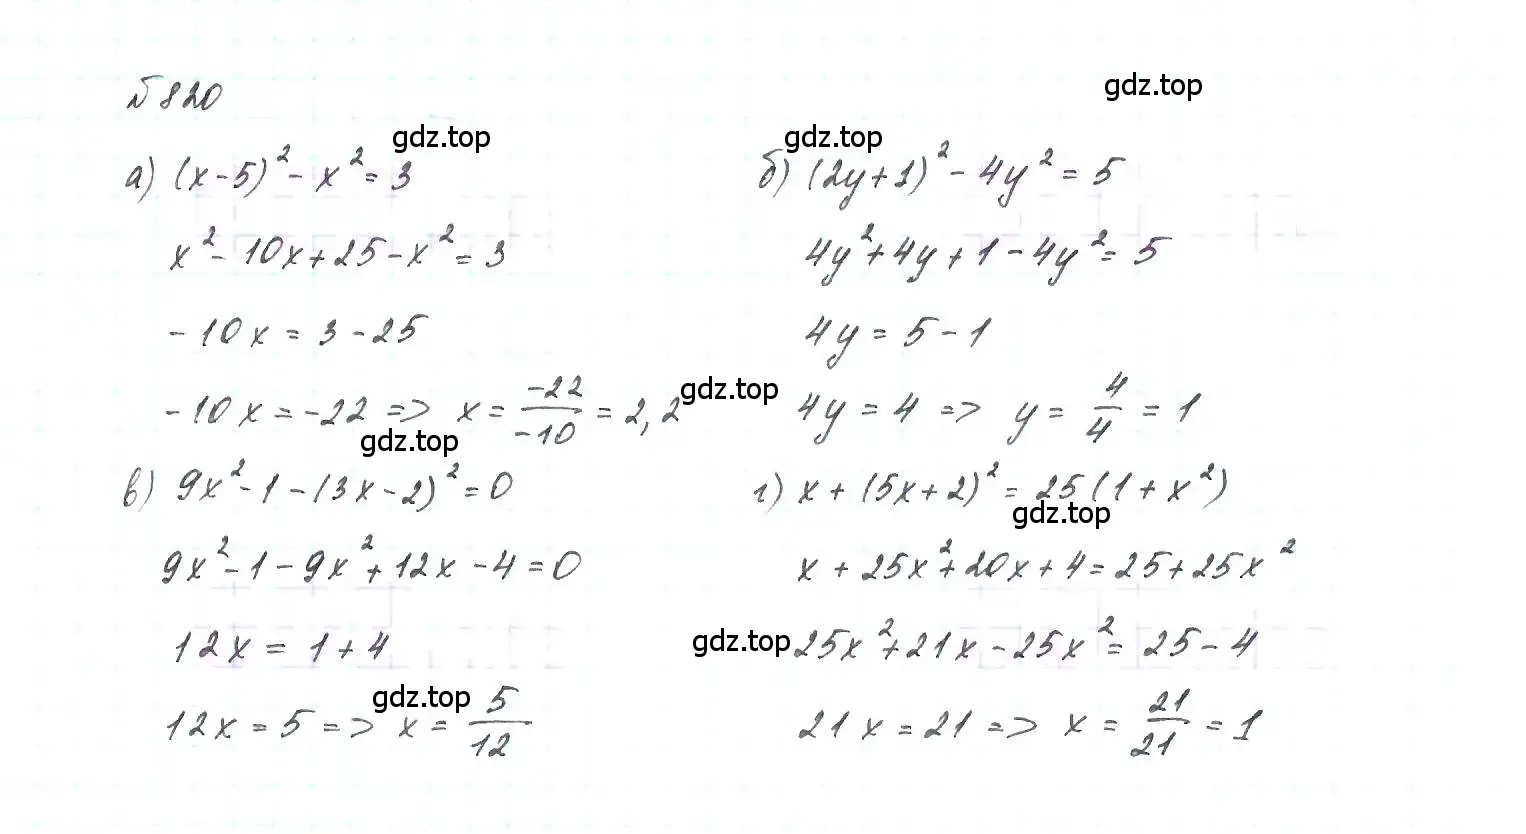 №820
gdz.top
gdz.top
gdz.top
а) (x-5)² - x² = 3
x² - 10x + 25 - x² = 3
-10x = 3 - 25
-10x = -22 => x = -22/-10 = 2,2
gdz.top
б) (2y+1)² - 4y² = 5
4y² + 4y + 1 - 4y² = 5
4y = 5 - 1
4y = 4 => y = 4/4 = 1
gdz.top
в) 9x² - 1 - (3x-2)² = 0
9x² - 1 - 9x² + 12x - 4 = 0
12x = 1 + 4
gdz.top
12x = 5 => x = 5/12
г) x + (5x+2)² = 25(1+x²)
gdz.top
x + 25x² + 20x + 4 = 25 + 25x²
gdz.top
25x² + 21x - 25x² = 25 - 4
21x = 21 => x = 21/21 = 1